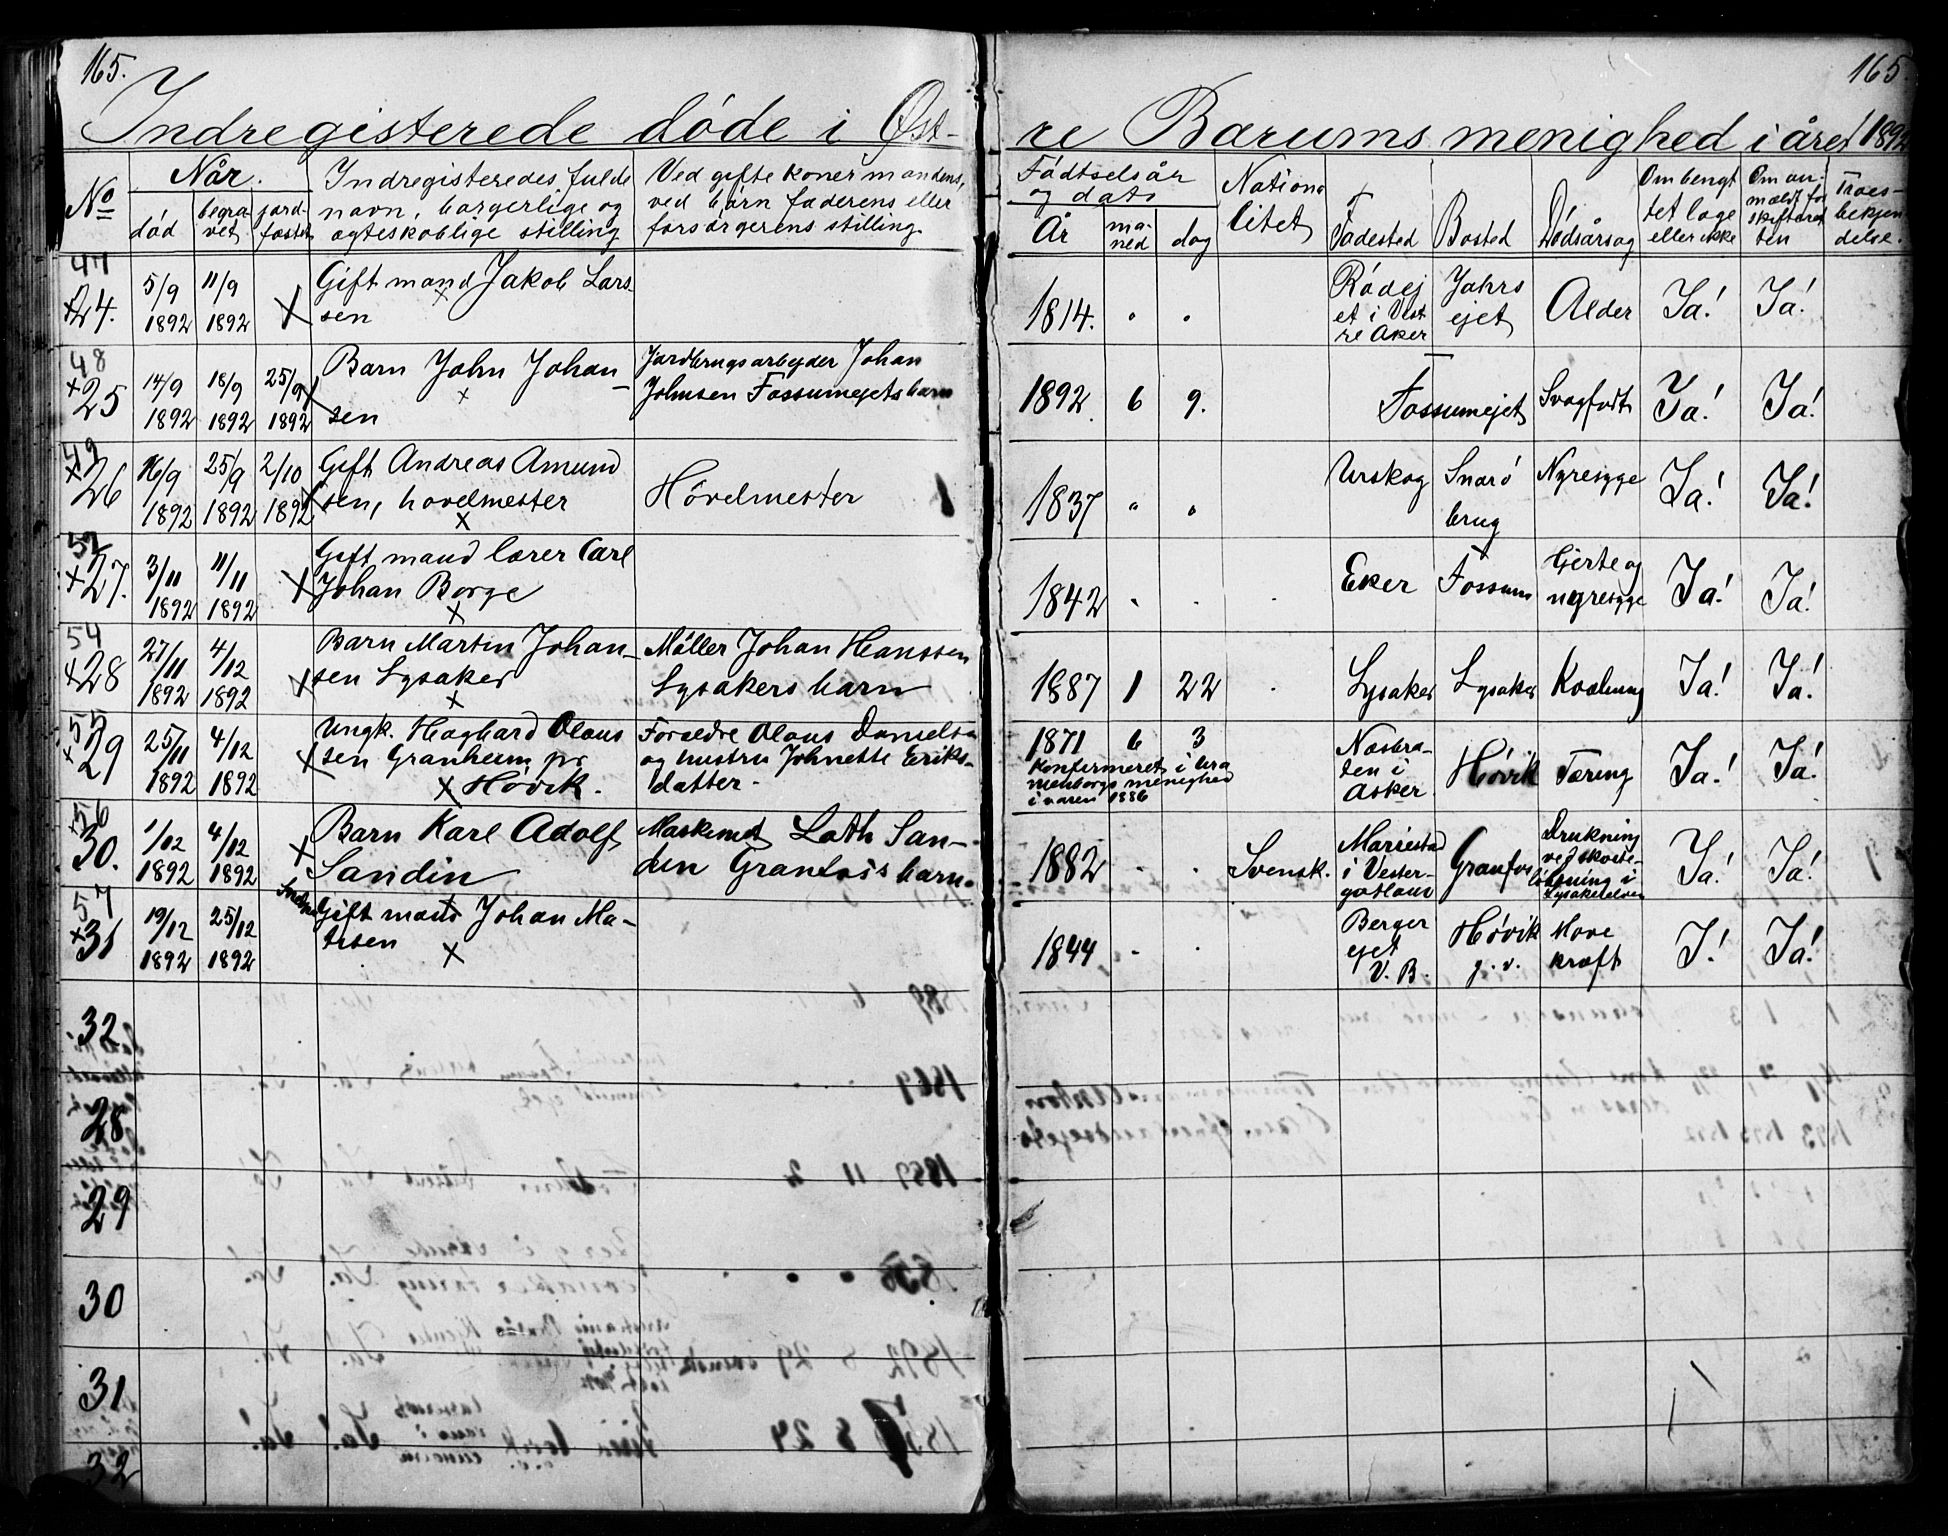 165.
165.
Indregisterede døde i Øst-
re Bærums menighed i året 1892
No
Når.
død
begra-
vet
jord-
fæstet
Indregisteredes fulde
navn, borgerlige og
ægteskablige stilling
Ved gifte koner mandens,
ved børn faderens eller
forsørgerens stilling.
Fødtselsår
og dato
År
må-
ned
dag
Natiöna
litet
Fødested
Bosted
Dødsårsag
Om bengt
tet læge
eller ikke
Om an-
mældt for
skifteret
ten
Troes-
bekjen
delse.
47
×24.
5/9
1892
11/9
1892
Gift mand Jakob Lars
sen
1814.
Rödej
et i Vest
re Aker
Jahrs
ejet
Alder
Ja!
Ja!
48
×25
14/9
1892
18/9
1892
25/9
1892
Barn John Johan-
sen
Jordbrugsarbejder Johan
Johnsen Fossumejets barn
1892
6
9.
Fossumejet
Svagfødt
Ja!
Ja!
49
×26
16/9
1892
25/9
1892
2/10
1892
Gift Andreas Amund
sen, hövelmester
Hövelmester
1837
Urskog
Snarö
brug
Nyresyge
Ja!
Ja!
52
×27.
3/11
1892
11/11
1892
Gift mand lærer Carl
Johan Borge
1842
Eker
Fossum
Hjerte og
nyresyge
Ja!
Ja!
54
×28
27/11
1892
4/12
1892
Barn Martin Johan-
sen Lysaker
Møller Johan Hanssen
Lysakers barn
1887
1
22
Lysaker
Lysaker
Kvælning
Ja!
Ja!
55
×29
25/11
1892
4/12
1892
Ungk. Hagbard Olaus
sen Granheim pr
Høvik.
Forældre Olaus Danielsen
og hustru Johnette Eriks-
datter.
1871
6
3
Konfirmeret i Ura
nienborgs menighed
i våren 1886
Næsbra-
ten i
Asker
Høvik
Tæring
Ja!
Ja!
56
30.
1/12
1892
4/12
1892
Barn Karl Adolf
Sandin
Maskinist Loth San-
din Grantois barn.
1882
Svensk.
Mariestad
i Vester-
gøtland
Drukning
ved skoite-
löbning i
Lysakerelven
Ja!
Ja!
57
×31
19/12
1892
25/12
1892
Gift mand Johan Ma-
tisen
1844
Berger
ejet
V. B.
Høvik
j. v.
Mave
kræft
J!
Ja!
32
28
29
30
31
32